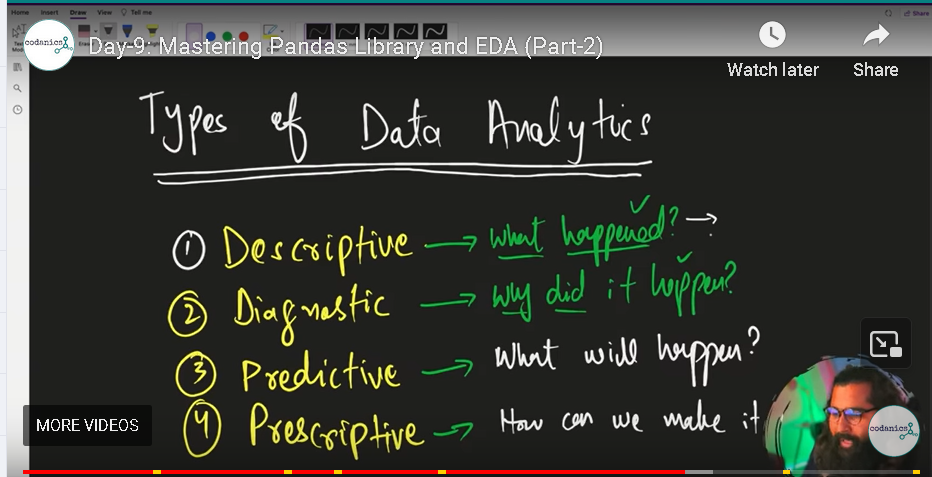 Home Insert Draw View Tell me Share
codanics
Day-9: Mastering Pandas Library and EDA (Part-2)
Watch later Share
Types of Data Analytics
1 Descriptive → what happened? →
2 Diagnostic → why did it happen?
3 Predictive → What will happen?
4 Prescriptive → How can we make it
MORE VIDEOS
codanics